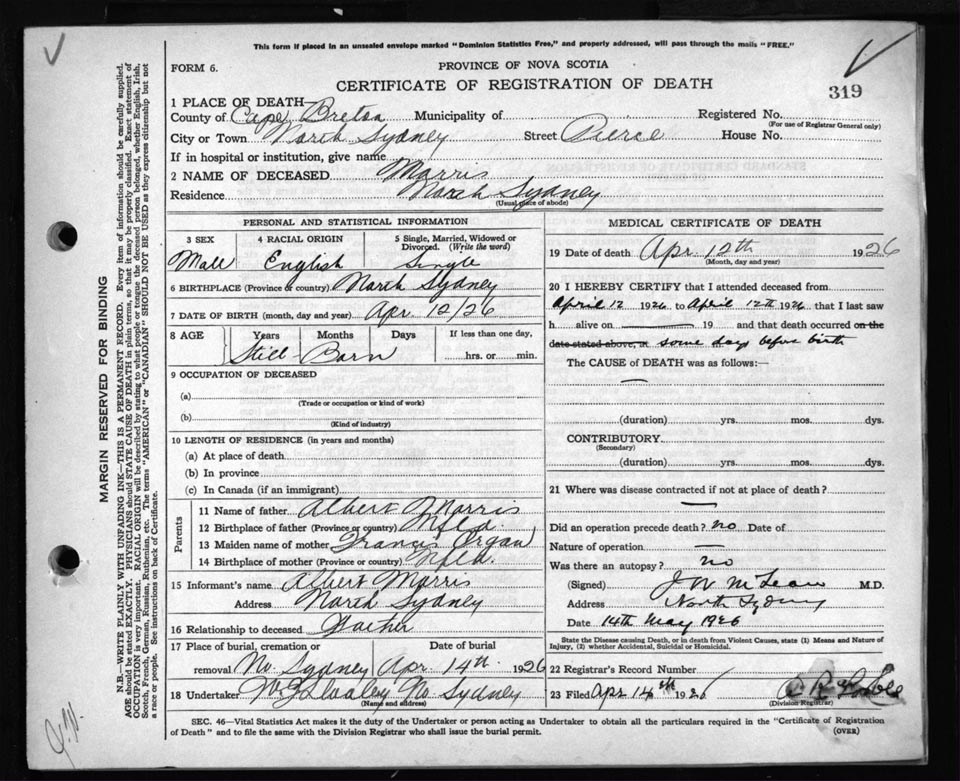 This form if placed in an unsealed envelope marked "Dominion Statistics Free," and properly addressed, will pass through the mails "FREE."
FORM 6.
PROVINCE OF NOVA SCOTIA
CERTIFICATE OF REGISTRATION OF DEATH
319
1 PLACE OF DEATH—
County of Cape Breton Municipality of Registered No.
(For use of Registrar General only)
City or Town North Sydney Street Pierce House No.
If in hospital or institution, give name
2 NAME OF DECEASED Morris
Residence North Sydney
(Usual place of abode)
PERSONAL AND STATISTICAL INFORMATION
3 SEX 4 RACIAL ORIGIN 5 Single, Married, Widowed or Divorced. (Write the word)
Male English Single
6 BIRTHPLACE (Province or country) North Sydney
7 DATE OF BIRTH (month, day and year) Apr. 12/26
8 AGE Years Months Days If less than one day,
Still Born hrs. or min.
9 OCCUPATION OF DECEASED
(a)
(Trade or occupation or kind of work)
(b)
(Kind of industry)
10 LENGTH OF RESIDENCE (in years and months)
(a) At place of death
(b) In province
(c) In Canada (if an immigrant)
Parents
11 Name of father Albert Morris
12 Birthplace of father (Province or country) Nfld
13 Maiden name of mother Francis Organ
14 Birthplace of mother (Province or country) Nfld.
15 Informant's name Albert Morris
Address North Sydney
16 Relationship to deceased Father
17 Place of burial, cremation or Date of burial
removal No. Sydney Apr. 14th 1926
18 Undertaker No Sydney
(Name and address)
MEDICAL CERTIFICATE OF DEATH
19 Date of death Apr. 12th 1926
(Month, day and year)
20 I HEREBY CERTIFY that I attended deceased from
April 12 1926 to April 12th 1926, that I last saw
h alive on 19 and that death occurred on the
date stated above, at some days before birth
The CAUSE of DEATH was as follows:—
(duration) yrs. mos. dys.
CONTRIBUTORY
(Secondary)
(duration) yrs. mos. dys.
21 Where was disease contracted if not at place of death?
Did an operation precede death? no Date of
Nature of operation
Was there an autopsy? no
(Signed) J W McLean M.D.
Address North Sydney
Date 14th May 1926
State the Disease causing Death, or in death from Violent Causes, state (1) Means and Nature of
Injury, (2) whether Accidental, Suicidal or Homicidal.
22 Registrar's Record Number
23 Filed Apr 14th 1926
(Division Registrar)
SEC. 46—Vital Statistics Act makes it the duty of the Undertaker or person acting as Undertaker to obtain all the particulars required in the "Certificate of Registration
of Death" and to file the same with the Division Registrar who shall issue the burial permit.
(OVER)
MARGIN RESERVED FOR BINDING
N.B.—WRITE PLAINLY WITH UNFADING INK—THIS IS A PERMANENT RECORD. Every item of information should be carefully supplied.
AGE should be stated EXACTLY. PHYSICIANS should STATE CAUSE OF DEATH in plain terms, so that it may be properly classified. Exact statement of
OCCUPATION is very important. RACIAL ORIGIN will be described by stating to what people or tongue the deceased person belonged, whether English, Irish,
Scotch, French, German, Russian, Ruthenian, etc. The terms "AMERICAN" or "CANADIAN" SHOULD NOT BE USED as they express citizenship but not
a race or people. See instructions on back of Certificate.